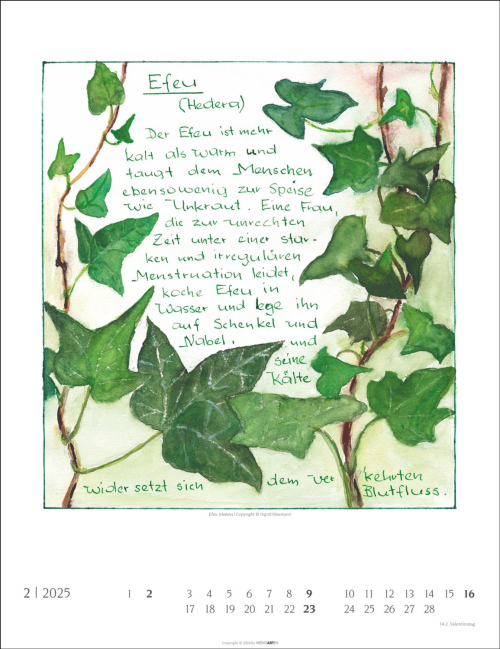 Efeu
(Hedera)
Der Efeu ist mehr
kalt als warm und
taugt dem Menschen
ebensowenig zur Speise
wie Unkraut. Eine Frau,
die zur unrechten
Zeit unter einer star-
ken und irregulären
Menstruation leidet,
koche Efeu in
Wasser und lege ihn
auf Schenkel und
Nabel, und
seine
Kälte
wider setzt sich dem ver kehrten
Blutfluss.
Efeu (Hedera) Copyright ©
2 | 2025 1 2 3 4 5 6 7 8 9 10 11 12 13 14 15 16
17 18 19 20 21 22 23 24 25 26 27 28
14.2. Valentinstag
Copyright ©